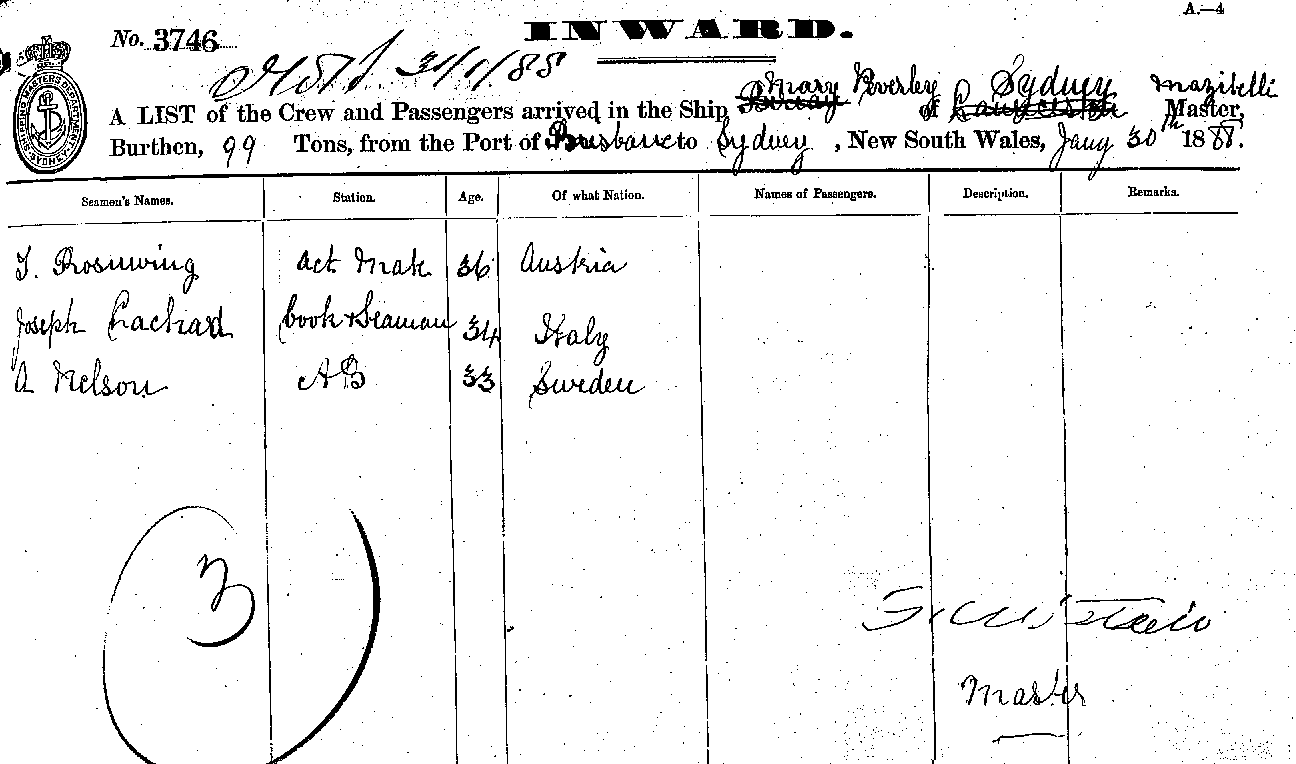 A.—4
INWARD.
No. 3746
31/1/88
Mary Beverley Sydney Mazitelli
A LIST of the Crew and Passengers arrived in the Ship of Master,
Burthen, 99 Tons, from the Port of Brisbane to Sydney, New South Wales, Jany 30th 1888.
SHIPPING MASTERS DEPARTMENT SYDNEY
Seamen's Names. Station. Age. Of what Nation. Names of Passengers. Description. Remarks.
act Mate 36 Austria
Joseph Cook & Seaman 34 Italy
A Nelson AB 33 Sweden
3
Master